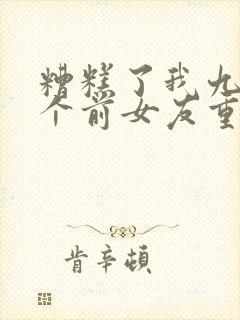 糟糕了我九
个前女友重
肯辛顿